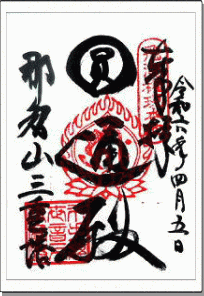 奉拝
令和六年四月五日
圓通殿
那智山三重塔